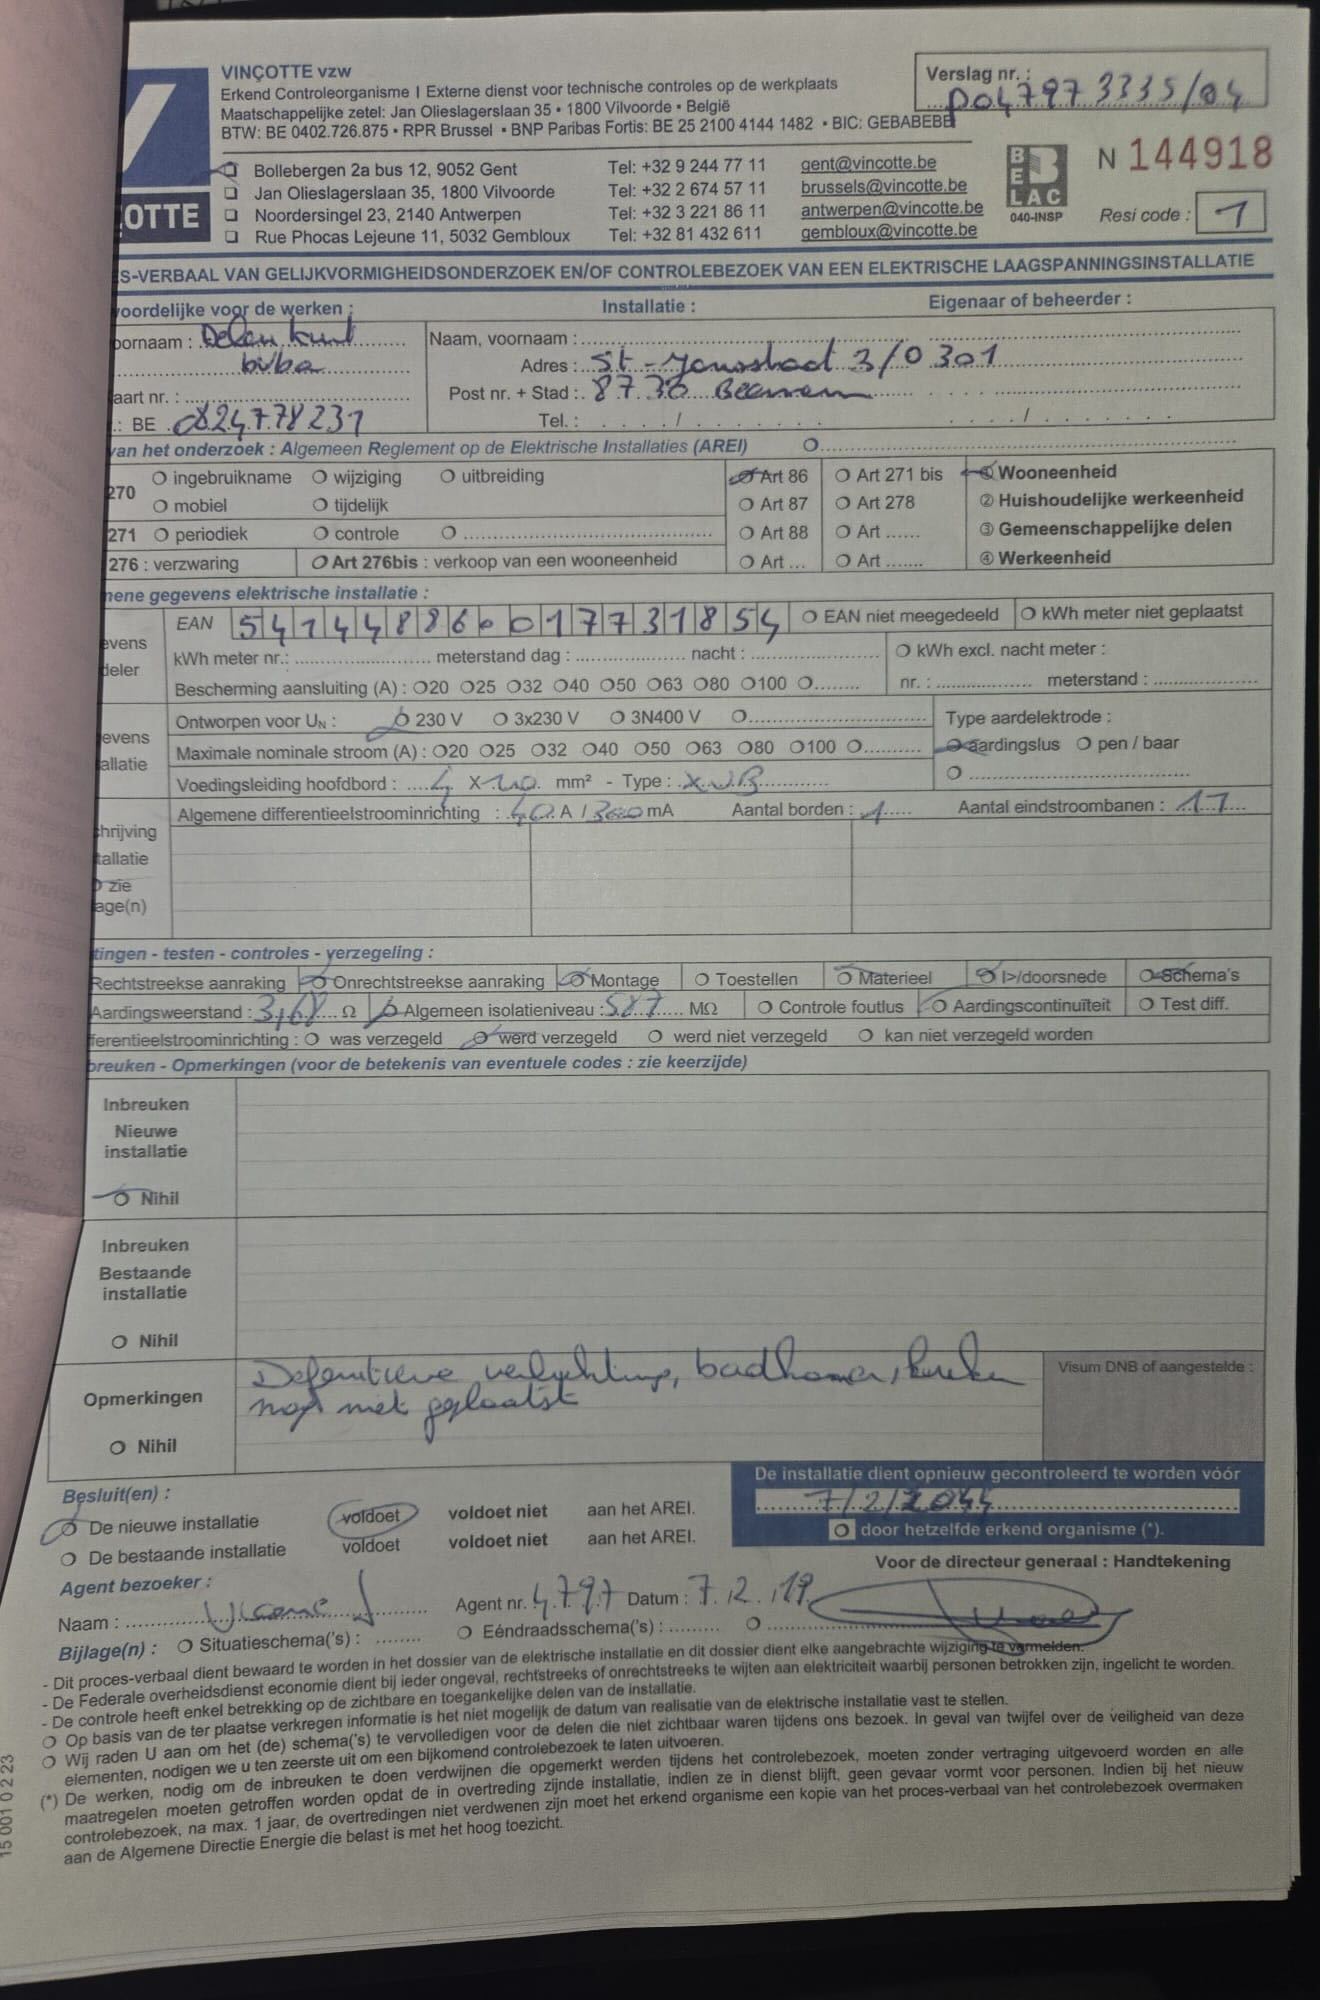 VINÇOTTE vzw
Erkend Controleorganisme | Externe dienst voor technische controles op de werkplaats
Maatschappelijke zetel: Jan Olieslagerslaan 35 • 1800 Vilvoorde • België
BTW: BE 0402.726.875 • RPR Brussel • BNP Paribas Fortis: BE 25 2100 4144 1482 • BIC: GEBABEBE
Verslag nr. : P047973335/04
OTTE
Bollebergen 2a bus 12, 9052 Gent Tel: +32 9 244 77 11 gent@vincotte.be
Jan Olieslagerslaan 35, 1800 Vilvoorde Tel: +32 2 674 57 11 brussels@vincotte.be
Noordersingel 23, 2140 Antwerpen Tel: +32 3 221 86 11 antwerpen@vincotte.be
Rue Phocas Lejeune 11, 5032 Gembloux Tel: +32 81 432 611 gembloux@vincotte.be
BELAC
040-INSP
N 144918
Resi code : 1
ES-VERBAAL VAN GELIJKVORMIGHEIDSONDERZOEK EN/OF CONTROLEBEZOEK VAN EEN ELEKTRISCHE LAAGSPANNINGSINSTALLATIE
voordelijke voor de werken : Installatie : Eigenaar of beheerder :
oornaam : bvba
Naam, voornaam :
Adres : 3/0301
Post nr. + Stad : 8730 Beernem
aart nr. :
.: BE 0824.778231 Tel. : / /
van het onderzoek : Algemeen Reglement op de Elektrische Installaties (AREI)
270 ingebruikname wijziging uitbreiding Art 86 Art 271 bis ① Wooneenheid
mobiel tijdelijk Art 87 Art 278 ② Huishoudelijke werkeenheid
271 periodiek controle Art 88 Art ...... ③ Gemeenschappelijke delen
276 : verzwaring Art 276bis : verkoop van een wooneenheid Art ... Art ....... ④ Werkeenheid
mene gegevens elektrische installatie :
evens
deler
EAN 541448860017731854 EAN niet meegedeeld kWh meter niet geplaatst
kWh meter nr.: meterstand dag : nacht : kWh excl. nacht meter :
Bescherming aansluiting (A) : 20 25 32 40 50 63 80 100 nr. : meterstand :
evens
allatie
Ontworpen voor UN : 230 V 3x230 V 3N400 V Type aardelektrode :
Maximale nominale stroom (A) : 20 25 32 40 50 63 80 100 aardingslus pen / baar
Voedingsleiding hoofdbord : 4 X 10 mm² - Type : XVB
Algemene differentieelstroominrichting : 40 A / 300 mA Aantal borden : 1 Aantal eindstroombanen : 17
hrijving
tallatie
zie
age(n)
tingen - testen - controles - verzegeling :
Rechtstreekse aanraking Onrechtstreekse aanraking Montage Toestellen Materieel I>/doorsnede Schema's
Aardingsweerstand : 3,68 Ω Algemeen isolatieniveau : 587 MΩ Controle foutlus Aardingscontinuïteit Test diff.
ferentieelstroominrichting : was verzegeld werd verzegeld werd niet verzegeld kan niet verzegeld worden
breuken - Opmerkingen (voor de betekenis van eventuele codes : zie keerzijde)
Inbreuken
Nieuwe
installatie
Nihil
Inbreuken
Bestaande
installatie
Nihil
Opmerkingen
Definitieve verlichting, badkamer, keuken
nog niet geplaatst
Nihil
Visum DNB of aangestelde :
Besluit(en) :
De nieuwe installatie voldoet voldoet niet aan het AREI.
De bestaande installatie voldoet voldoet niet aan het AREI.
De installatie dient opnieuw gecontroleerd te worden vóór
7/2/2044
door hetzelfde erkend organisme (*).
Voor de directeur generaal : Handtekening
Agent bezoeker :
Naam : Agent nr. 4797 Datum : 7.2.19
Bijlage(n) : Situatieschema('s) : ........ Eéndraadsschema('s) : .........
- Dit proces-verbaal dient bewaard te worden in het dossier van de elektrische installatie en dit dossier dient elke aangebrachte wijziging te vermelden.
- De Federale overheidsdienst economie dient bij ieder ongeval, rechtstreeks of onrechtstreeks te wijten aan elektriciteit waarbij personen betrokken zijn, ingelicht te worden.
- De controle heeft enkel betrekking op de zichtbare en toegankelijke delen van de installatie.
Op basis van de ter plaatse verkregen informatie is het niet mogelijk de datum van realisatie van de elektrische installatie vast te stellen.
Wij raden U aan om het (de) schema('s) te vervolledigen voor de delen die niet zichtbaar waren tijdens ons bezoek. In geval van twijfel over de veiligheid van deze
elementen, nodigen we u ten zeerste uit om een bijkomend controlebezoek te laten uitvoeren.
(*) De werken, nodig om de inbreuken te doen verdwijnen die opgemerkt werden tijdens het controlebezoek, moeten zonder vertraging uitgevoerd worden en alle
maatregelen moeten getroffen worden opdat de in overtreding zijnde installatie, indien ze in dienst blijft, geen gevaar vormt voor personen. Indien bij het nieuw
controlebezoek, na max. 1 jaar, de overtredingen niet verdwenen zijn moet het erkend organisme een kopie van het proces-verbaal van het controlebezoek overmaken
aan de Algemene Directie Energie die belast is met het hoog toezicht.
15 001 0 2 23